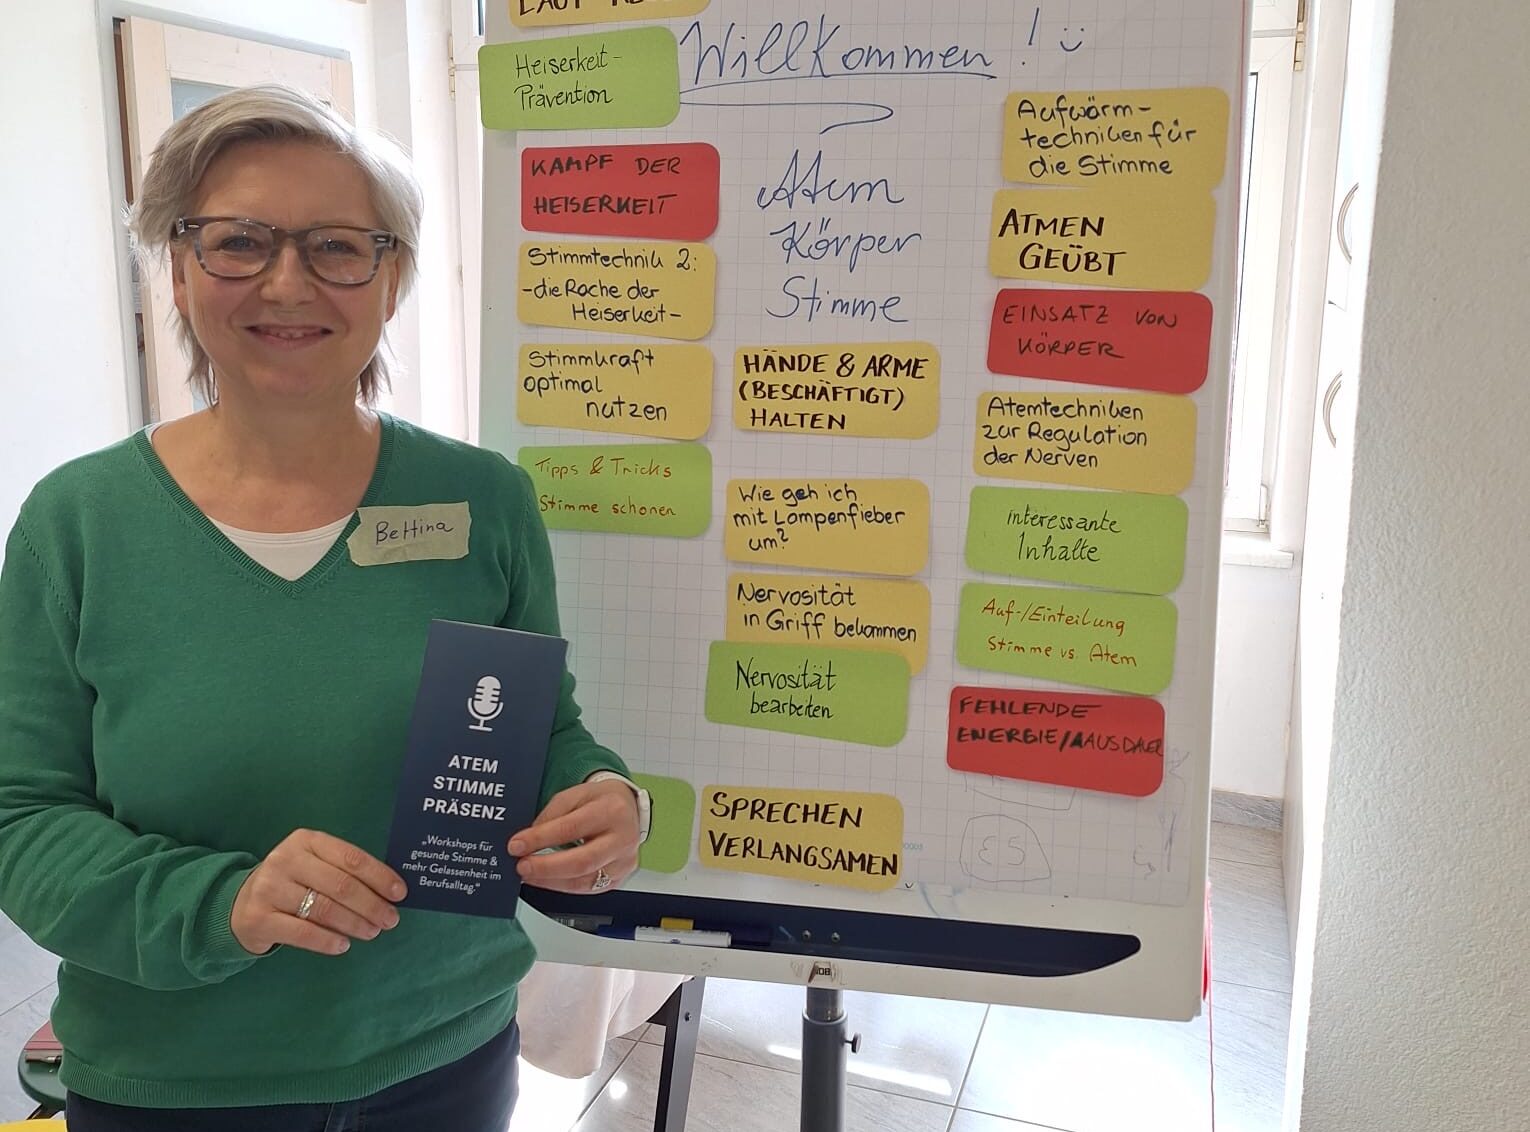 LAUT
Willkommen! :)
Heiserkeit-
Prävention
KAMPF DER
HEISERKEIT
Stimmtechnik 2:
-die Rache der
Heiserkeit-
Stimmkraft
optimal
nutzen
Tipps & Tricks
Stimme schonen
Atem
Körper
Stimme
HÄNDE & ARME
(BESCHÄFTIGT)
HALTEN
Wie geh ich
mit Lampenfieber
um?
Nervosität
in Griff bekommen
Nervosität
bearbeiten
SPRECHEN
VERLANGSAMEN
Aufwärm-
techniken für
die Stimme
ATMEN
GEÜBT
EINSATZ VON
KÖRPER
Atemtechniken
zur Regulation
der Nerven
interessante
Inhalte
Auf-/Einteilung
Stimme vs. Atem
FEHLENDE
ENERGIE/AUSDAUER
Bettina
ATEM
STIMME
PRÄSENZ
„Workshops für
gesunde Stimme &
mehr Gelassenheit im
Berufsalltag."